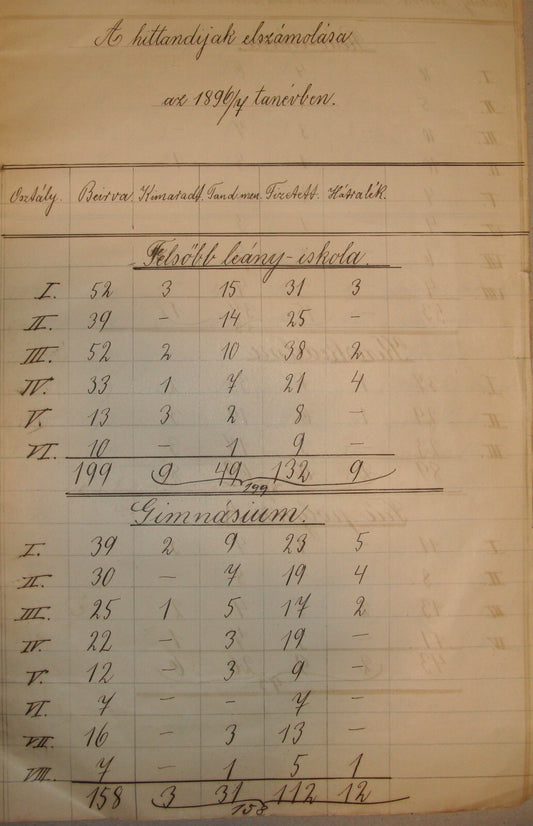 A hittandijak elszámolása
az 1896/7 tanévben.
Osztály. Beirva Kimaradt. Tand men. Fizetett. Hátralék.
Felsőbb leány-iskola.
I. 52 3 15 31 3
II. 39 - 14 25 -
III. 52 2 10 38 2
IV. 33 1 7 21 4
V. 13 3 2 8 -
VI. 10 - 1 9 -
199 9 49 132 9
199
Gimnásium.
I. 39 2 9 23 5
II. 30 - 7 19 4
III. 25 1 5 17 2
IV. 22 - 3 19 -
V. 12 - 3 9 -
VI. 7 - - 7 -
VII. 16 - 3 13 -
VIII. 7 - 1 5 1
158 3 31 112 12
158